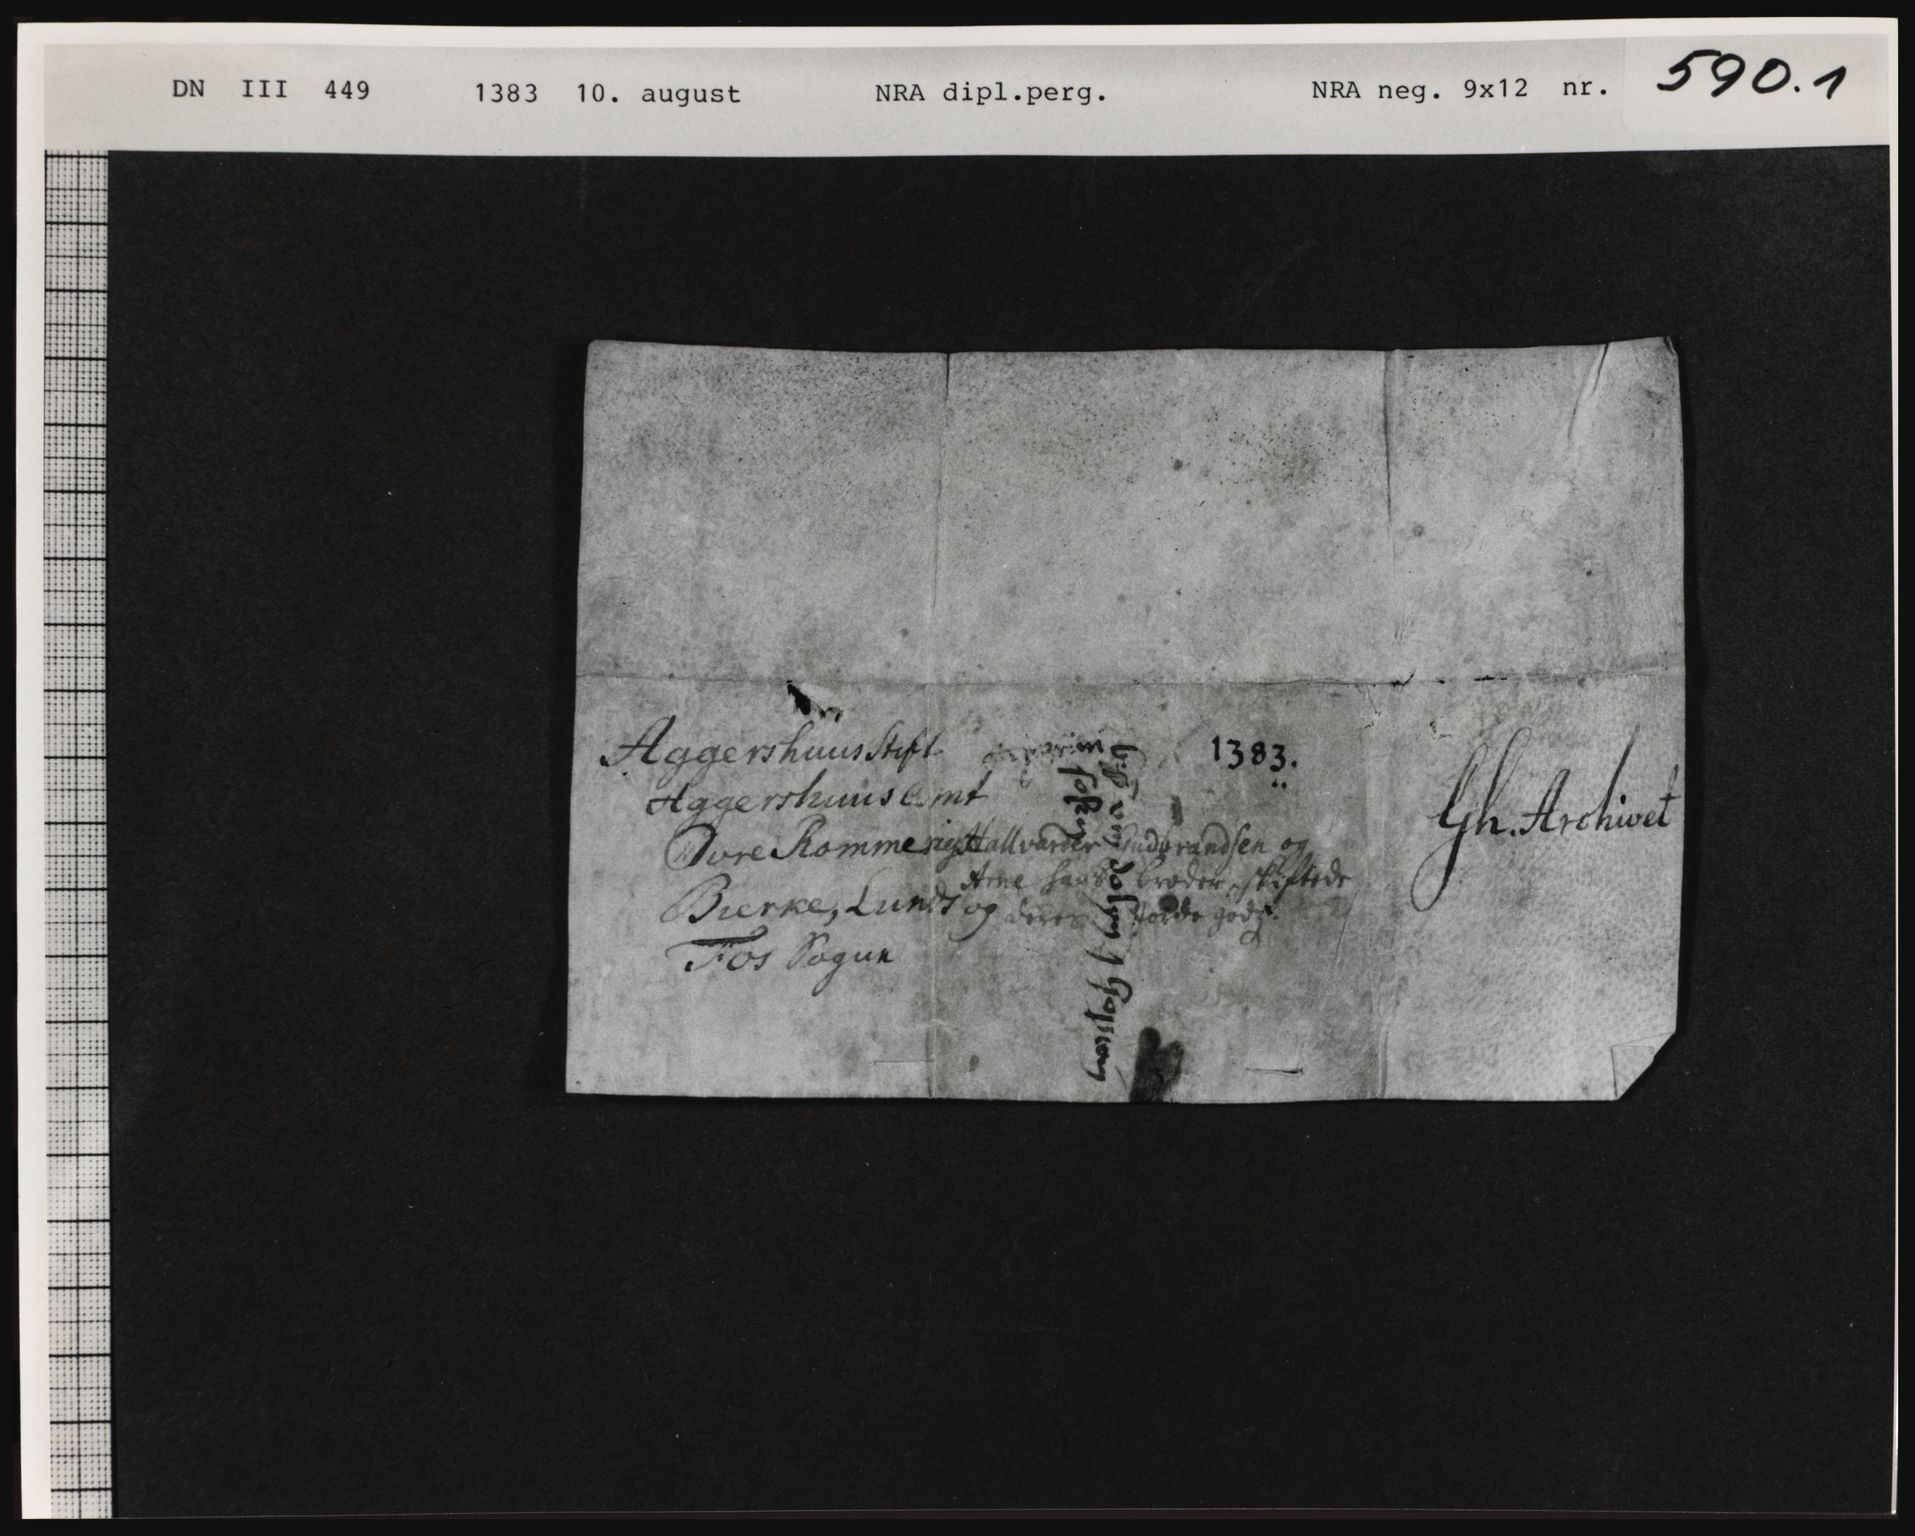 DN III 449 1383 10. august NRA dipl.perg. NRA neg. 9x12 nr. 590.1
Aggershuus Stift
Aggershuus Amt
Øvre Rommerige
Bierke, Lunds og
Fos Sogne
1383.
Hallvarder Gudbrandsen og
Arne hans broder, skiftede
deres Jorde godz.
Gh. Archivet